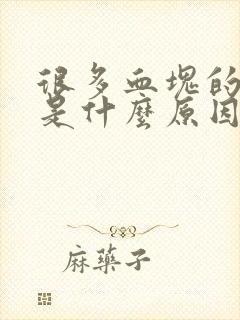 很多血塊的
是什麼原因
麻藥子